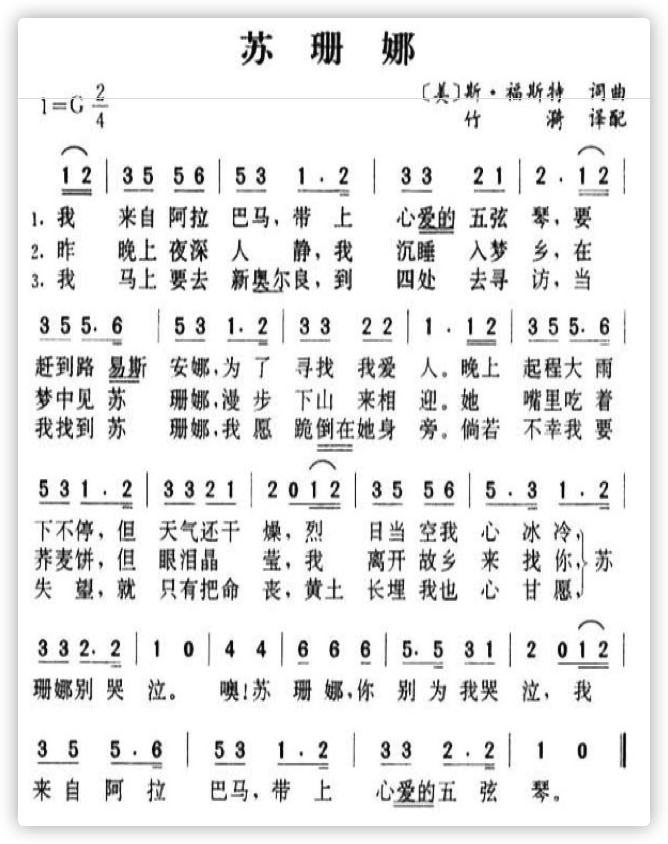 苏珊娜
1=G 2/4
〔美〕斯·福斯特 词曲
竹 漪 译配
12 | 35 56 | 53 1·2 | 33 21 | 2·12 |
1. 我 来自 阿拉 巴马，带 上 心爱的 五弦 琴，要
2. 昨 晚上 夜深 人 静，我 沉睡 入梦 乡，在
3. 我 马上 要去 新奥尔良，到 四处 去寻 访，当
35 5·6 | 53 1·2 | 33 22 | 1·12 | 35 5·6 |
赶到路 易斯 安娜，为了 寻找 我爱 人。晚上 起程大 雨
梦中见 苏 珊娜，漫步 下山 来相 迎。她 嘴里吃 着
我找到 苏 珊娜，我愿 跪倒在她身 旁。倘若 不幸我 要
53 1·2 | 33 21 | 2 0 12 | 35 56 | 5·3 1·2 |
下不停，但 天气还干 燥，烈 日当 空我 心 冰冷，
荞麦饼，但 眼泪晶 莹，我 离开 故乡 来 找你，苏
失 望，就 只有把命 丧，黄土 长埋 我也 心 甘愿，
33 2·2 | 1 0 | 4 4 | 6 6 6 | 5·5 31 | 2 0 12 |
珊娜别 哭 泣。 噢！苏 珊娜，你 别 为我哭 泣，我
3 5 5·6 | 53 1·2 | 33 2·2 | 1 0 ‖
来自 阿 拉 巴马，带 上 心爱的五 弦 琴。